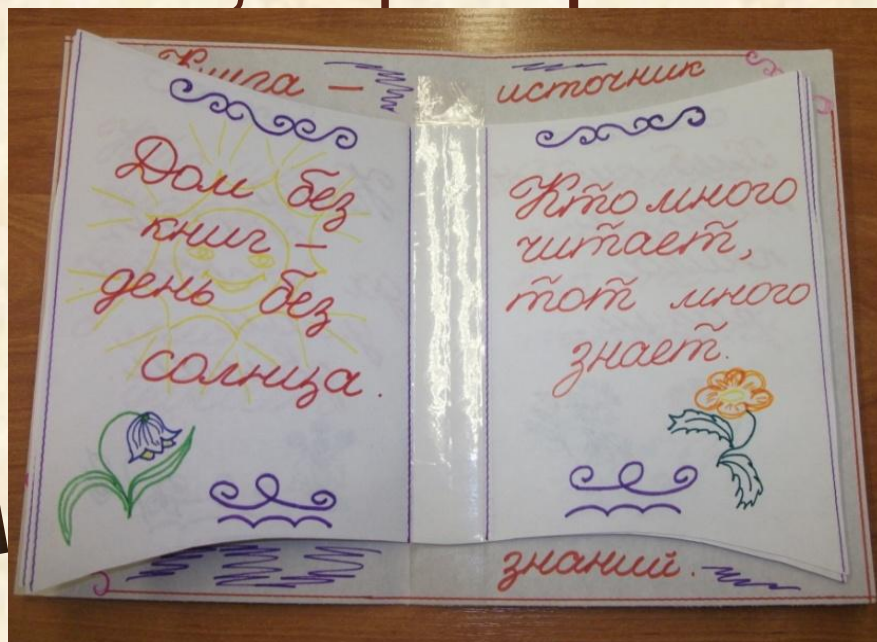 Книга – источник
Дом без
книг –
день без
солнца.
Кто много
читает,
тот много
знает.
знаний.